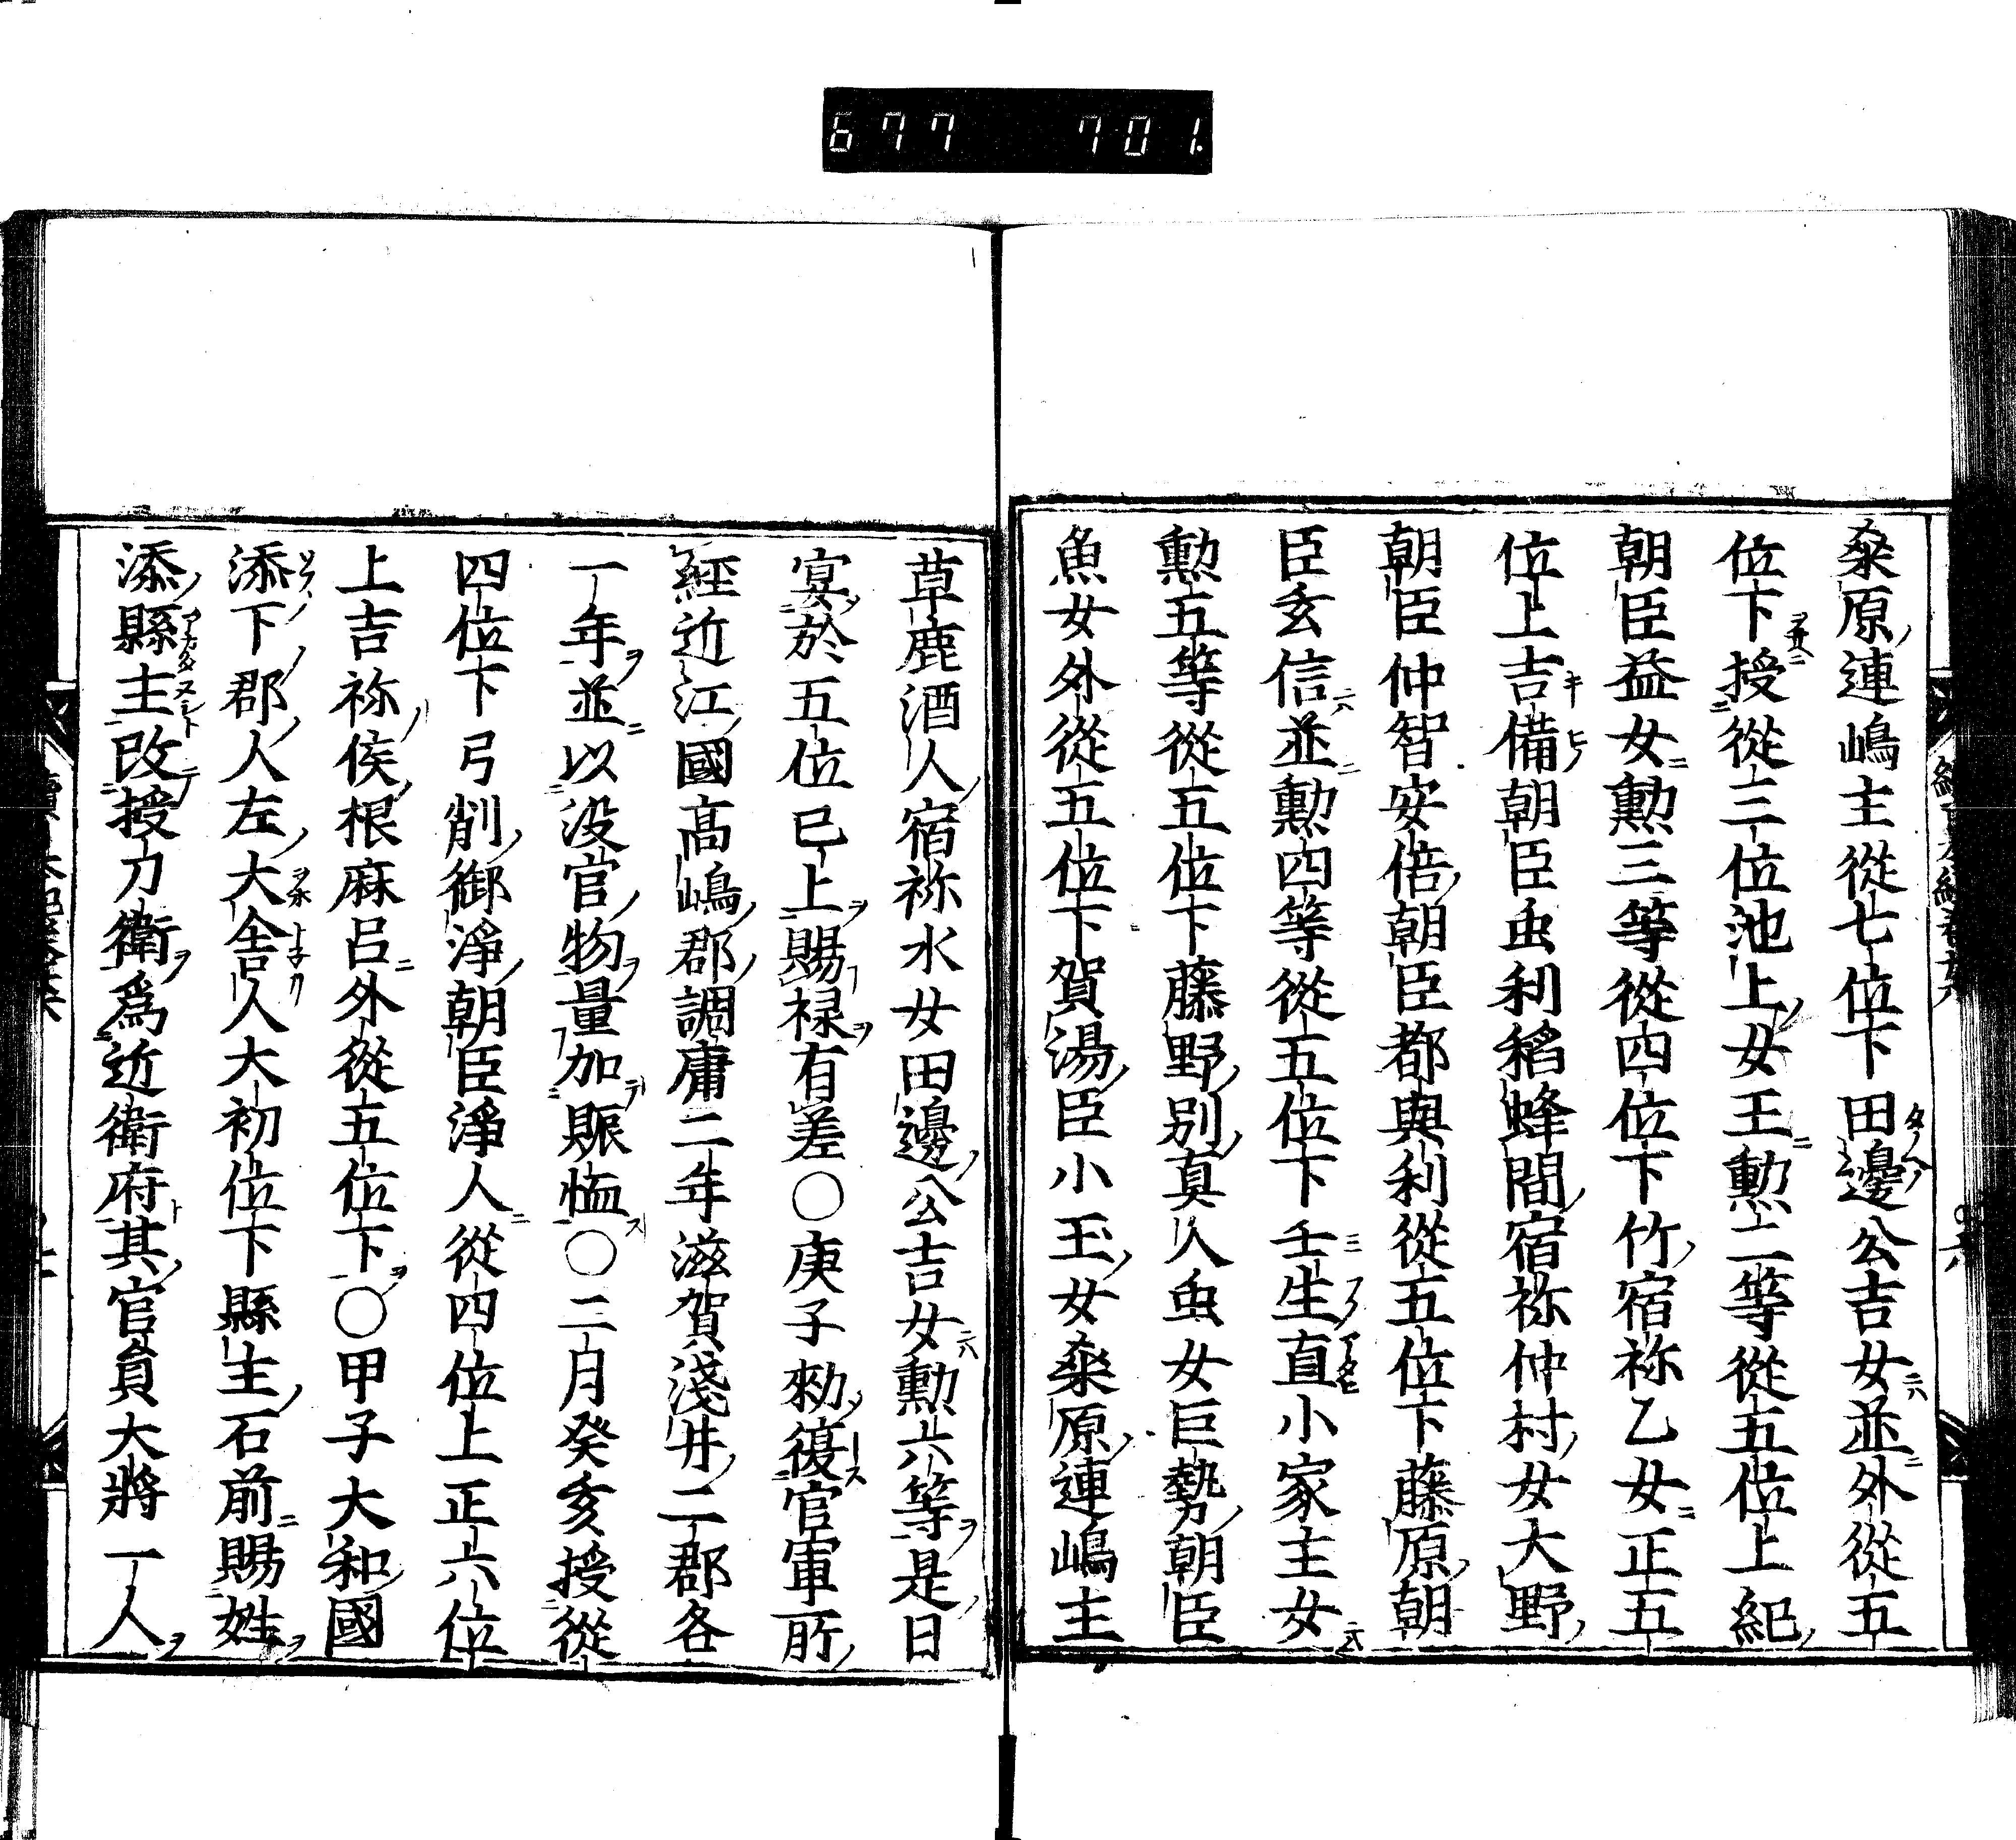 677 701.
桒原連嶋主從七位下田邊公吉女並外從五
位下授從三位池上女王勲二等從五位上紀
朝臣益女勲三等從四位下竹宿祢乙女正五
位上吉備朝臣虫利稻蜂間宿祢仲村女大野
朝臣仲智安倍朝臣都與利從五位下藤原朝
臣玄信並勲四等從五位下壬生直小家主女
勲五等從五位下藤野別真人虫女巨勢朝臣
魚女外從五位下賀湯臣小玉女桒原連嶋主
草鹿酒人宿祢水女田邊公吉女勲六等是日
宴於五位已上賜禄有差〇庚子勑復官軍所
經近江國髙嶋郡調庸二年滋賀淺井二郡各
一年並以没官物量加賑恤〇二月癸亥授從
四位下弓削御淨朝臣淨人從四位上正六位
上吉祢侯根麻呂外從五位下〇甲子大和國
添下郡人左大舎人大初位下縣主石前賜姓
添縣主改授刀衛爲近衛府其官負大將一人